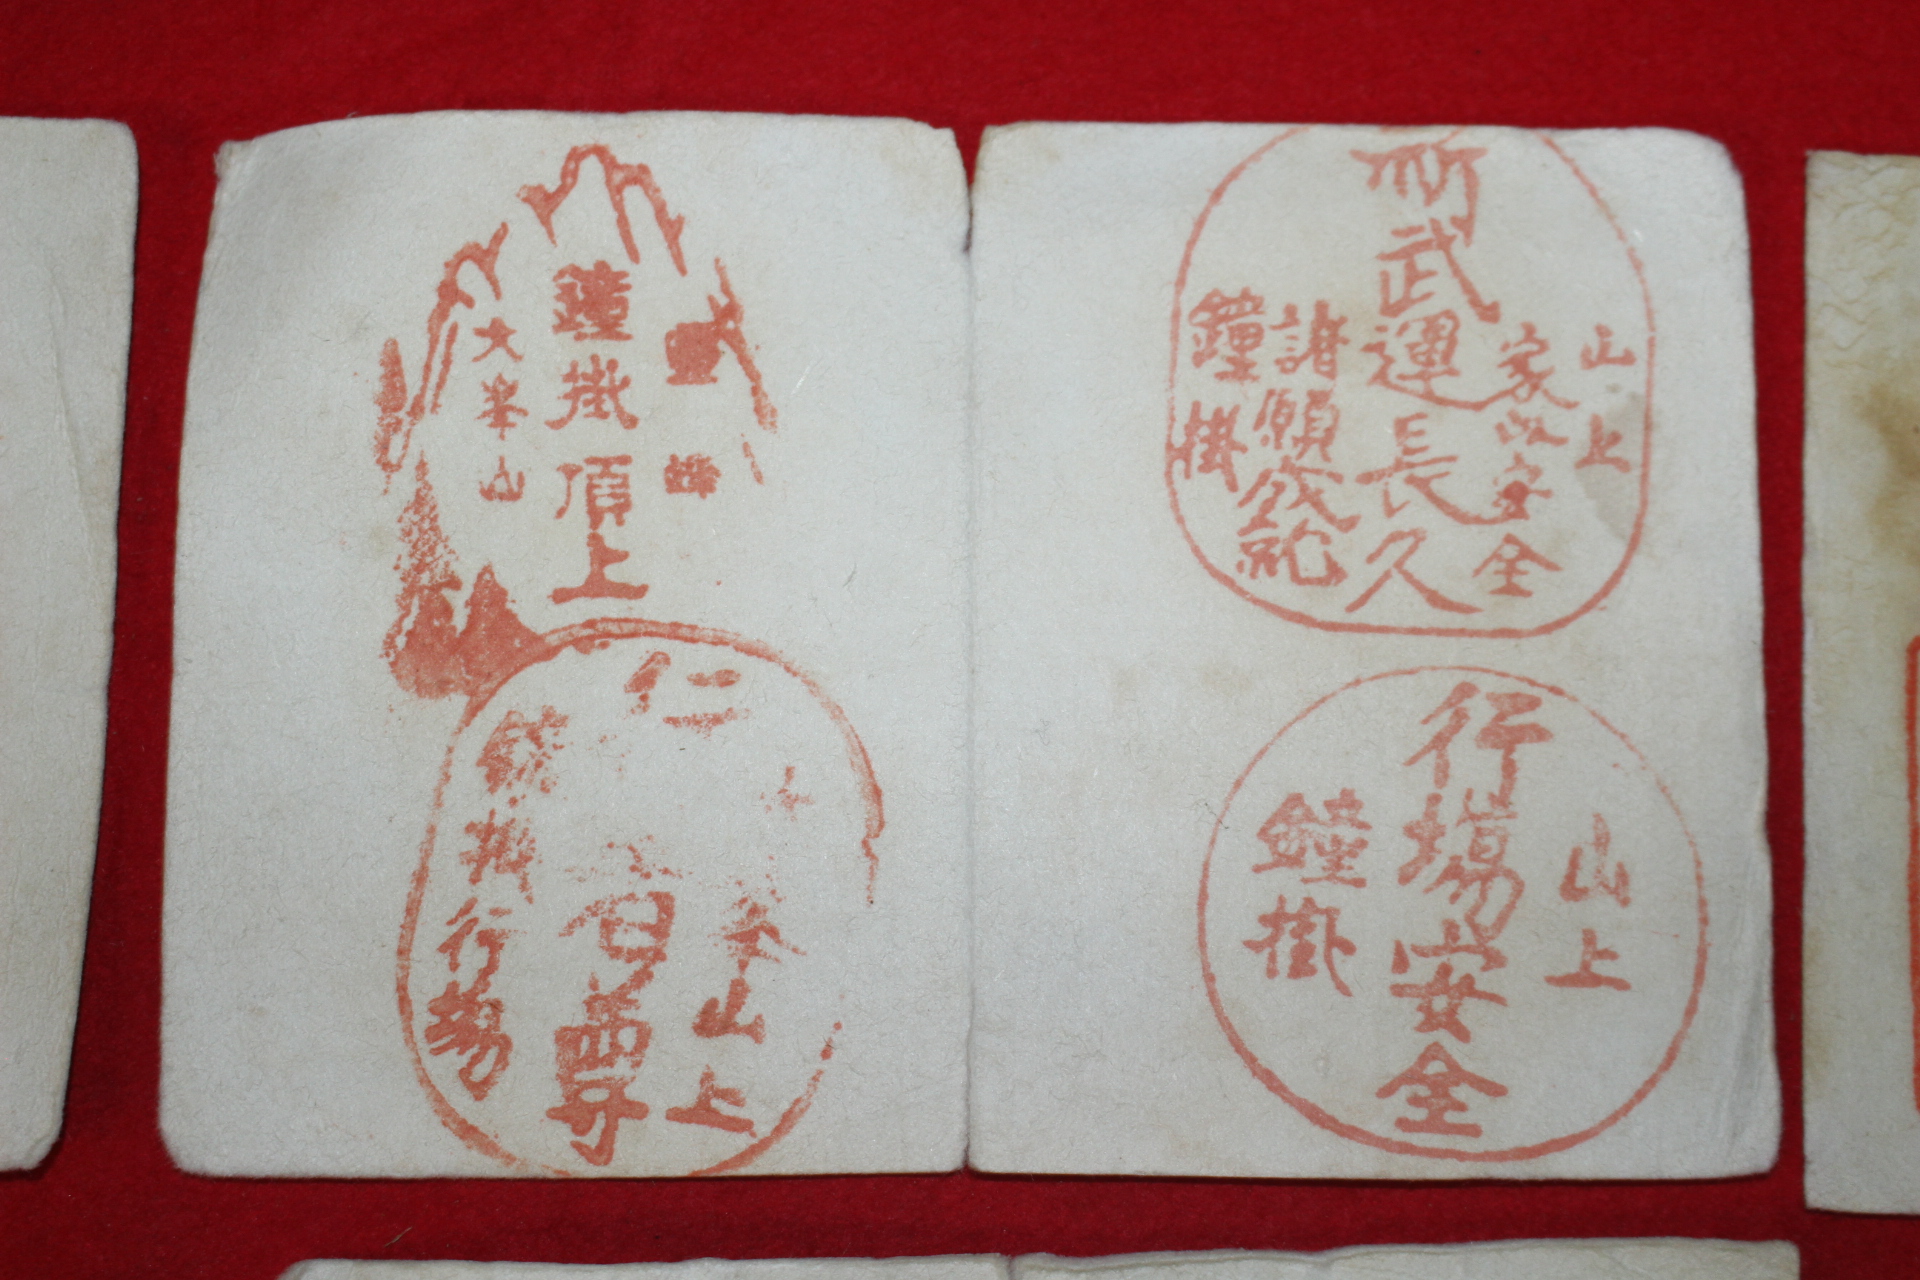 山上
祈武運長久
家内安全
諸願成就
鐘掛
山上
行場安全
鐘掛
鐘掛頂上
大峯山
仁
山上
尊
鐘掛行場